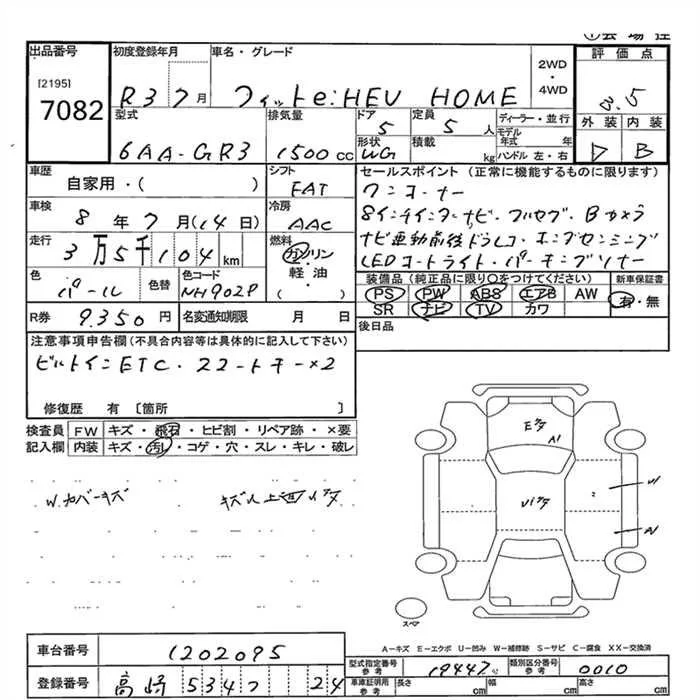 出品番号 初度登録年月 車名・グレード 2WD・4WD 評価点
[2195]
7082 R3 7月 フィットe:HEV HOME 3.5
型式 排気量 ドア 定員 ディーラー・並行 外装 内装
6AA-GR3 1500cc 5 5人 モデル年式 年
形状 積載 ハンドル 左・右
WG kg B
車歴 自家用・( ) シフト FAT
セールスポイント (正常に機能するものに限ります)
ワンオーナー
車検 8年7月(14日) 冷房 AAC
8インチインターナビ・フルセグ・Bカメラ
走行 3万5千104km 燃料 ガソリン 軽油・( )
ナビ連動前後ドラレコ・ホンダセンシング
LEDオートライト・パーキングソナー
色 パール 色替 色コード NH902P
装備品 (純正品に限り○をつけてください) 新車保証書
PS PW ABS エアB AW 有・無
SR ナビ TV カワ
R券 9.350円 名変通知期限 月 日
後日品
注意事項申告欄 (不具合内容等は具体的に記入して下さい)
ビルトインETC・スマートキー×2
修復歴 有 [箇所 ]
検査員記入欄 FW キズ・飛石・ヒビ割・リペア跡・×要
内装 キズ・汚レ・コゲ・穴・スレ・キレ・破レ
W.カバーキズ
A1
スペア
A-キズ E-エクボ U-凹み W-補修跡 S-サビ C-腐食 XX-交換済
車台番号 1202095
型式指定番号 参考 19447 類別区分番号 参考 0010
登録番号 高崎 534 フ 24
車庫証明用 参考 長さ cm 幅 cm 高さ cm